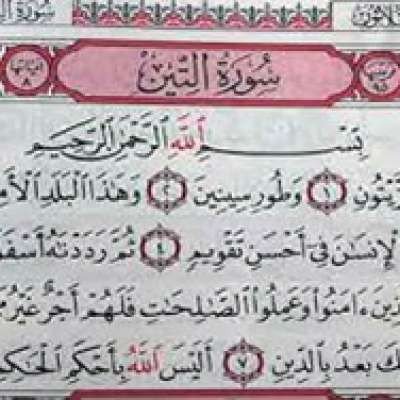 سُورَةُ
ثلاثون
آياتها ٨ سُورَةُ التِّينِ ٩٥
بِسْمِ اللَّهِ الرَّحْمَٰنِ الرَّحِيمِ
يْتُونِ ١ وَطُورِ سِينِينَ ٢ وَهَٰذَا الْبَلَدِ الْأَمِ
الْإِنسَانَ فِي أَحْسَنِ تَقْوِيمٍ ٤ ثُمَّ رَدَدْنَاهُ أَسْفَ
ذِينَ ءَامَنُوا وَعَمِلُوا الصَّالِحَاتِ فَلَهُمْ أَجْرٌ غَيْرُ مَ
كَ بَعْدُ بِالدِّينِ ٧ أَلَيْسَ اللَّهُ بِأَحْكَمِ الْحَاكِمِ